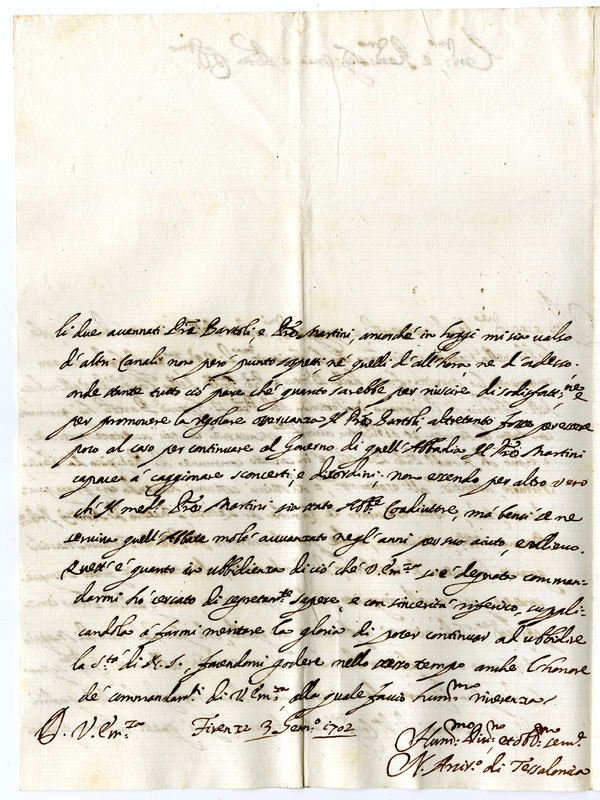 li due accennati Pri Bartoli, e Pre Martini, ancorché in hoggi mi sia valso
d'altri Canali non però punto sospetti né quelli d'all'hora né d'adesso.
onde stante tutto ciò pare ché quanto sarebbe per riuscire di sodisfatt.ne e
per promovere la regolare osservanza Il Pre Bartoli, altretanto forse per essere
poco al caso per continuare al Governo di quell'Abbadia Il Pre Martini
capace à caggionare sconcerti, e disordini; non essendo per altro vero
ché Il med.o Pre Martini sia stato Abb.e Coadiutore, mà bensì se ne
serviva quell'Abbate molto avvanzato negl'anni per suo aiuto, e sollievo.
Questi è quanto in ubbidienza di ciò ché V. Em.za si è degnata comman-
darmi hò cercato di segretam.te sapere, e con sincerità riferisco, suppli-
candola à farmi meritare la gloria di poter continuar ad ubbidire
la S.tà di N. S., facendomi godere nello stesso tempo anche l'honore
de' commandam.ti di V. Em.za, alla quale faccio hum.ma riverenza.
D. V. Em.za Firenze 3 Genn.o 1702
Hum.mo Div.mo et obb.mo Ser.e
N. Arciv.o di Tessalonica